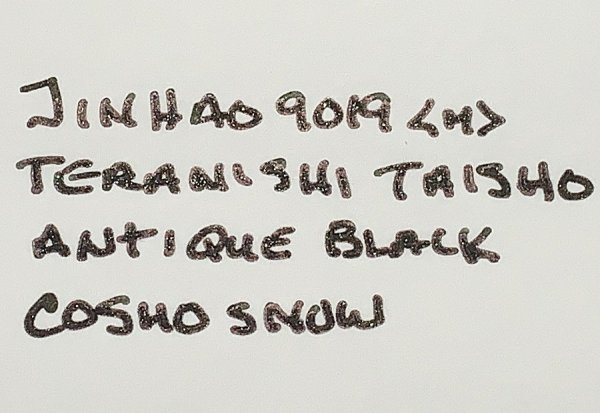 JINHAO 9019 <M>
TERANISHI TAISHO
ANTIQUE BLACK
COSHO SNOW